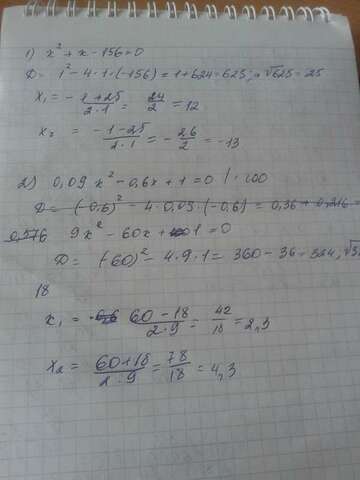 1) x² + x - 156 = 0
D = 1² - 4 · 1 · (-156) = 1 + 624 = 625; √625 = 25
x₁ = - 1 + 25 / 2 · 1 = 24 / 2 = 12
x₂ = - 1 - 25 / 2 · 1 = - 26 / 2 = -13
2) 0,09 x² - 0,6x + 1 = 0 | · 100
D = (-0,6)² - 4 · 0,09 · (-0,6) = 0,36 + 0,216 =
0,576 9x² - 60x + 1 = 0
D = (-60)² - 4 · 9 · 1 = 360 - 36 = 324, √3
18
x₁ = 60 - 18 / 2 · 9 = 42 / 18 = 2,3
x₂ = 60 + 18 / 2 · 9 = 78 / 18 = 4,3